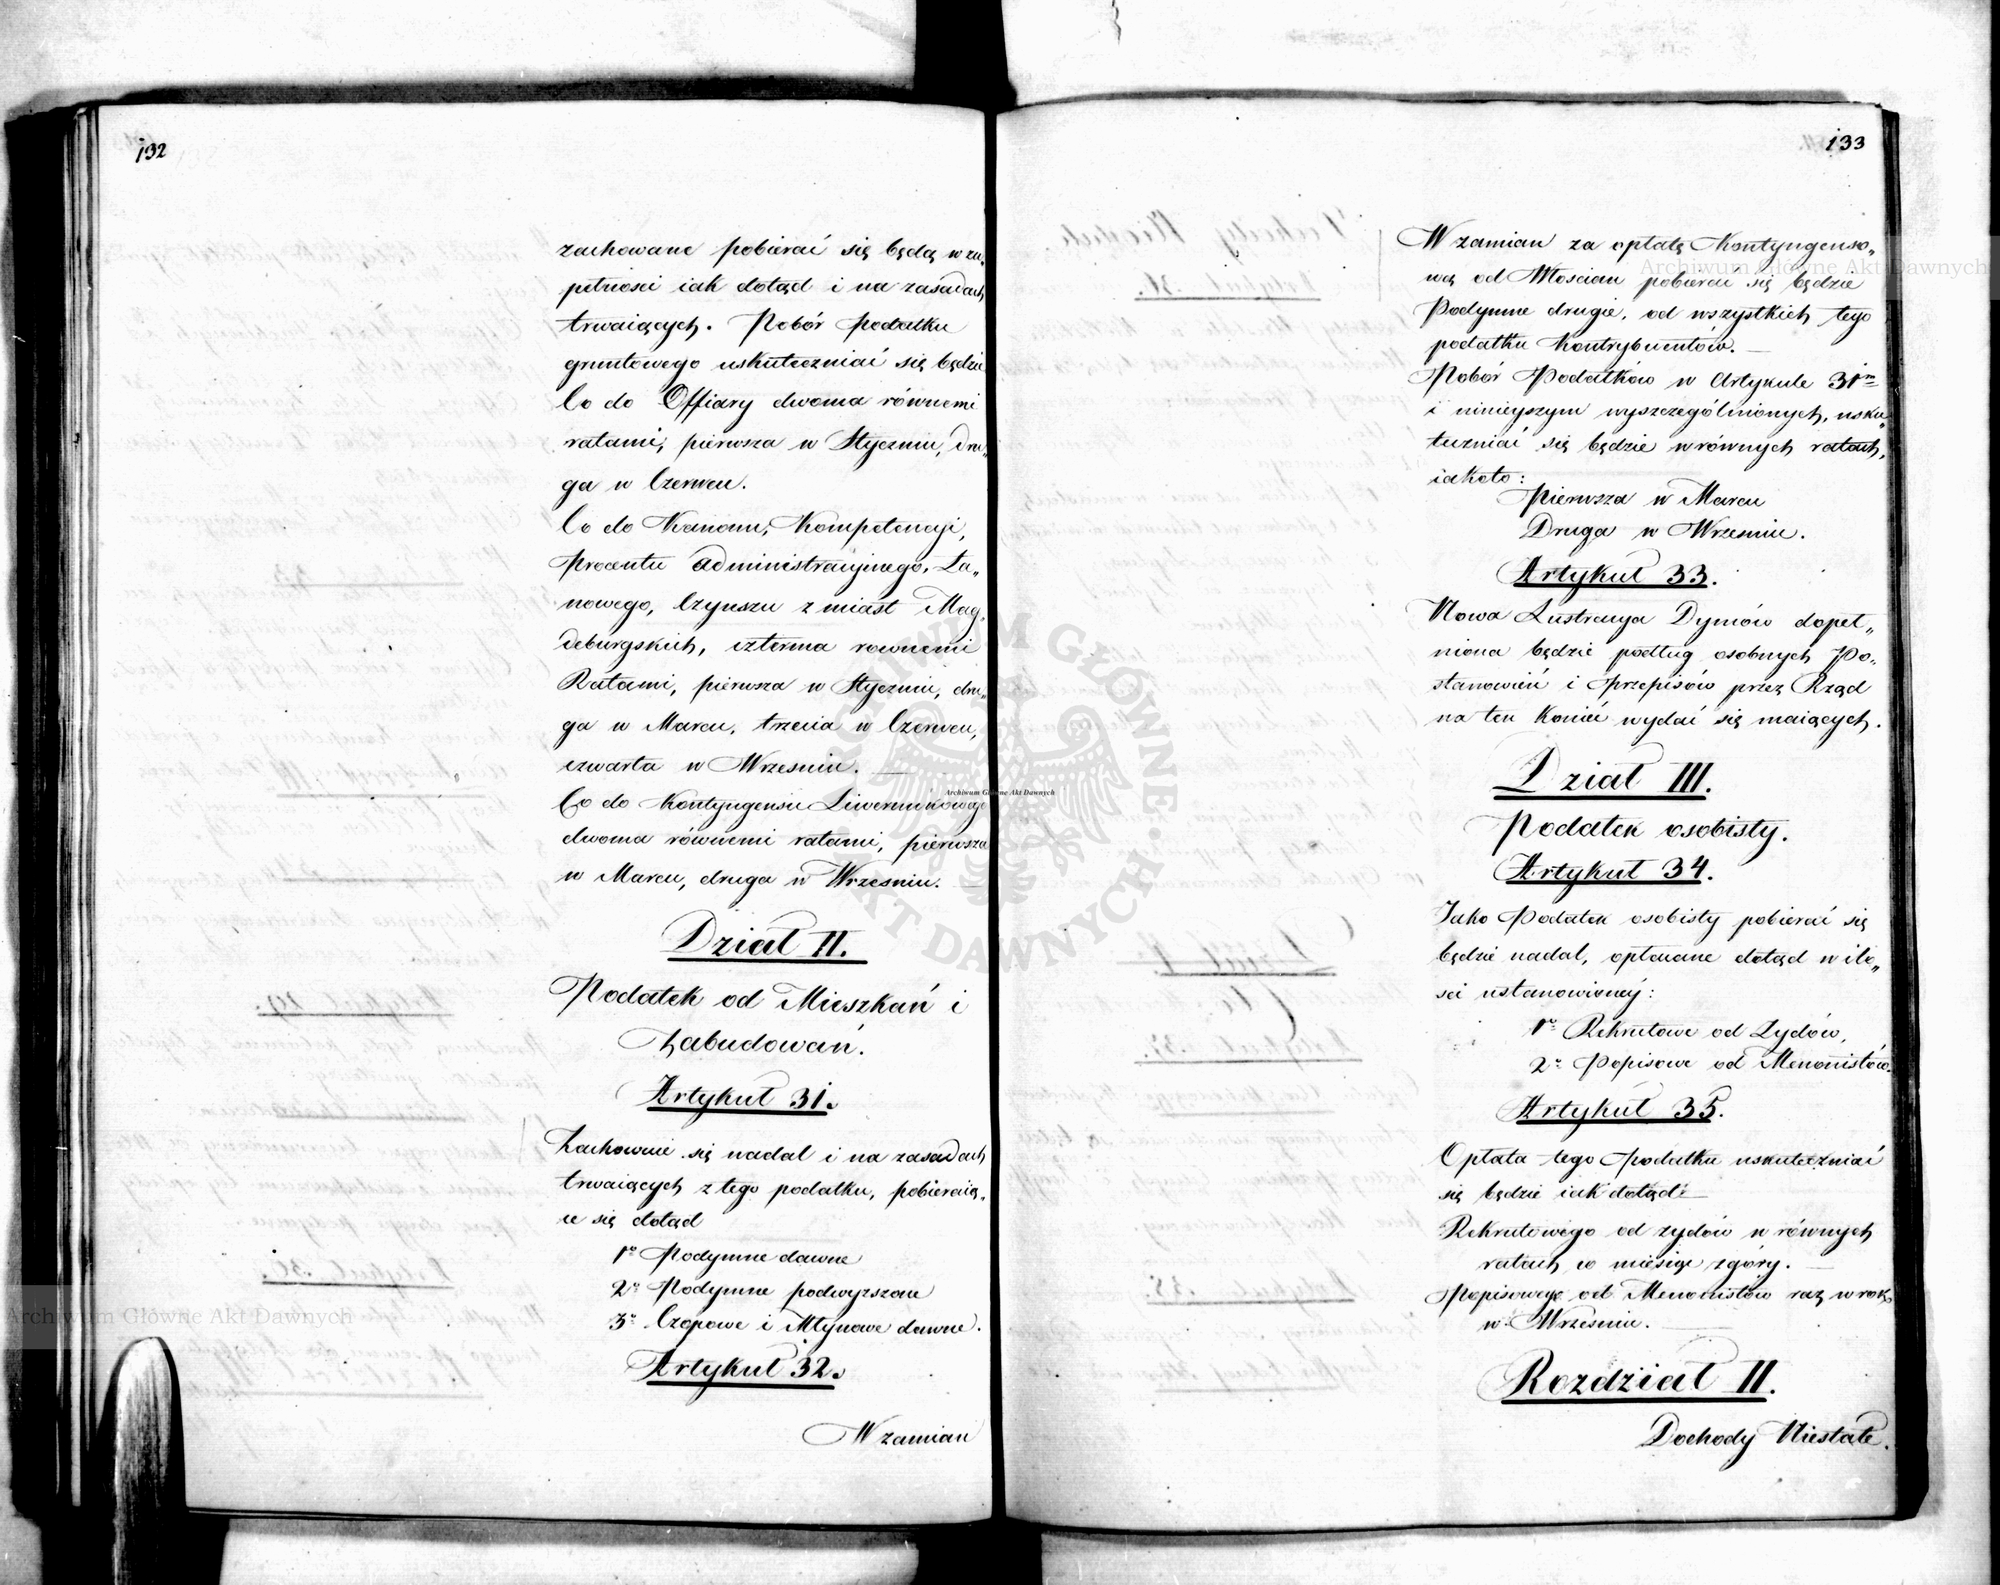 192
zachowane pobierać się będą w zu„
pełności iak dotąd i na zasadach
trwaiących. Pobór podatku
gruntowego uskuteczniać się będzie
Co do Offiary dwoma równemi
ratami, pierwsza w Styczniu, dru„
ga w Czerwcu.
Co do Kanonu, Kompetencyi,
Procentu administracyinego, Ła„
nowego, Czynszu z miast Mag„
deburgskich, czterma rownemi
Ratami, pierwsza w Styczniu, dru„
ga w Marcu, trzecia w Czerwcu,
czwarta w Wrzesniu. —
Co do Kontyngensu Liwerunkowego
dwoma równemi ratami, pierwsza
w Marcu, druga w Wrzesniu. —
Dział II.
Podatek od Mieszkań i
Zabudowań.
Artykuł 31.
Zachowuie się nadal i na zasadach
trwaiących z tego podatku, pobieraią„
ce się dotąd
1o Podymne dawne
2o Podymne podwyzszone
3o Czopowe i Młynowe dawne.
Artykuł 32.
W zamian
133
W zamian za opłatę Kontyngenso„
wą od Włoscian pobierać się będzie
Podymne drugie, od wszystkich tego
podatku Kontrybuentów. —
Pobór Podatkow w Artykule 31m
i ninieyszym wyszczególnionych, usku„
teczniać się będzie w równych ratach,
iakoto:
Pierwsza w Marcu
Druga w Wrzesniu.
Artykuł 33.
Nowa Lustracya Dymów dopeł„
niona będzie podług osobnych Po„
stanowień i Przepisów przez Rząd
na ten koniec wydać się maiących.
Dział III.
Podatek osobisty.
Artykuł 34.
Jako Podatek osobisty pobierać się
będzie nadal, opłacane dotąd w ilo„
sci ustanowioney:
1o Rekrutowe od Zydów,
2o Popisowe od Menonistów.
Artykuł 35.
Opłata tego Podatku uskuteczniać
się będzie iak dotąd: —
Rekrutowego od zydów w równych
ratach co miesiąc z góry. —
Popisowego od Menonistów raz w rok,
w Wrzesniu. —
Rozdział II.
Dochody Niestałe.
Archiwum Główne Akt Dawnych
Archiwum Główne Akt Dawnych
Archiwum Główne Akt Dawnych
ARCHIWUM GŁÓWNE AKT DAWNYCH